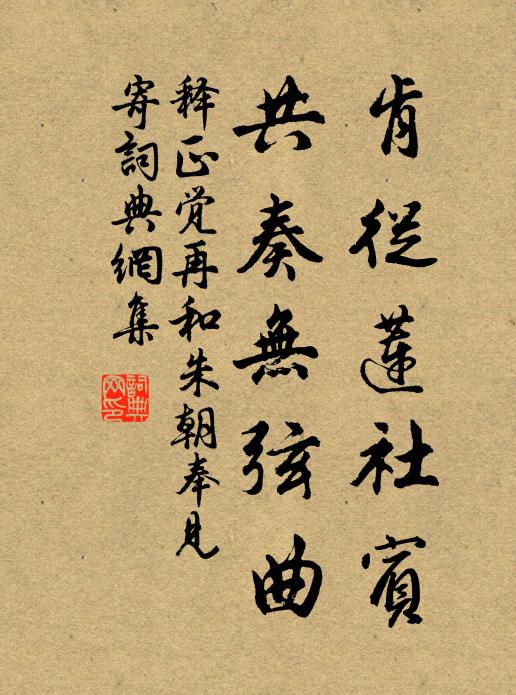 肯從蓮社賓
共奏無弦曲
释正觉再和朱朝奉見
寄詞典網集
詞典網印